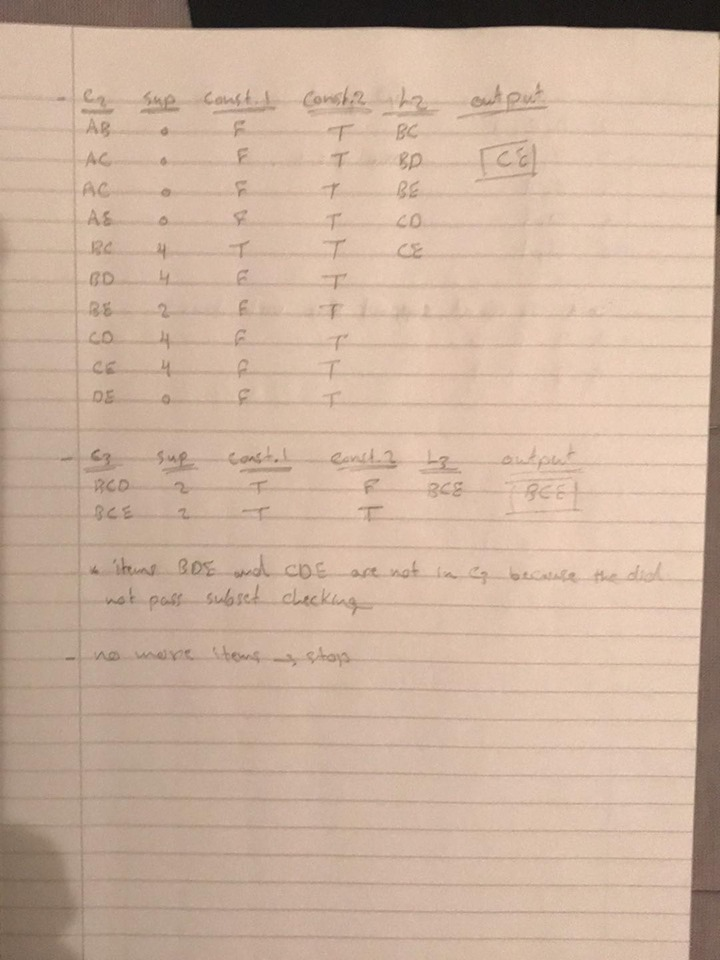 - C2 sup const.1 const.2 L2 output
AB 0 F T BC
AC 0 F T BD CE
AC 0 F T BE
AE 0 F T CD
BC 4 T T CE
BD 4 F T
BE 2 F T
CD 4 F T
CE 4 F T
DE 0 F T
- C3 sup const.1 const.2 L3 output
BCD 2 T F BCE BCE
BCE 2 T T
* items BDE and CDE are not in C3 because the did
not pass subset checking
- no more items → stop